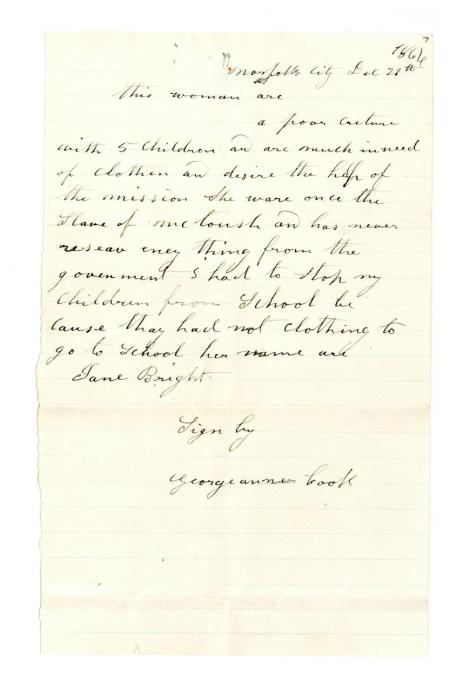 1866
Norfolk City Dec 21th
this woman are
a poor Creture
with 5 Children an are much in need
of Clothen an desire the help of
the mission She ware once the
Slave of mctoush an has never
reseav eney thing from the
govenment S had to Stop my
Children from School be
cause thay had not Clothing to
go to School her name are
Jane Bright
Sign by
Georgeanner Cook